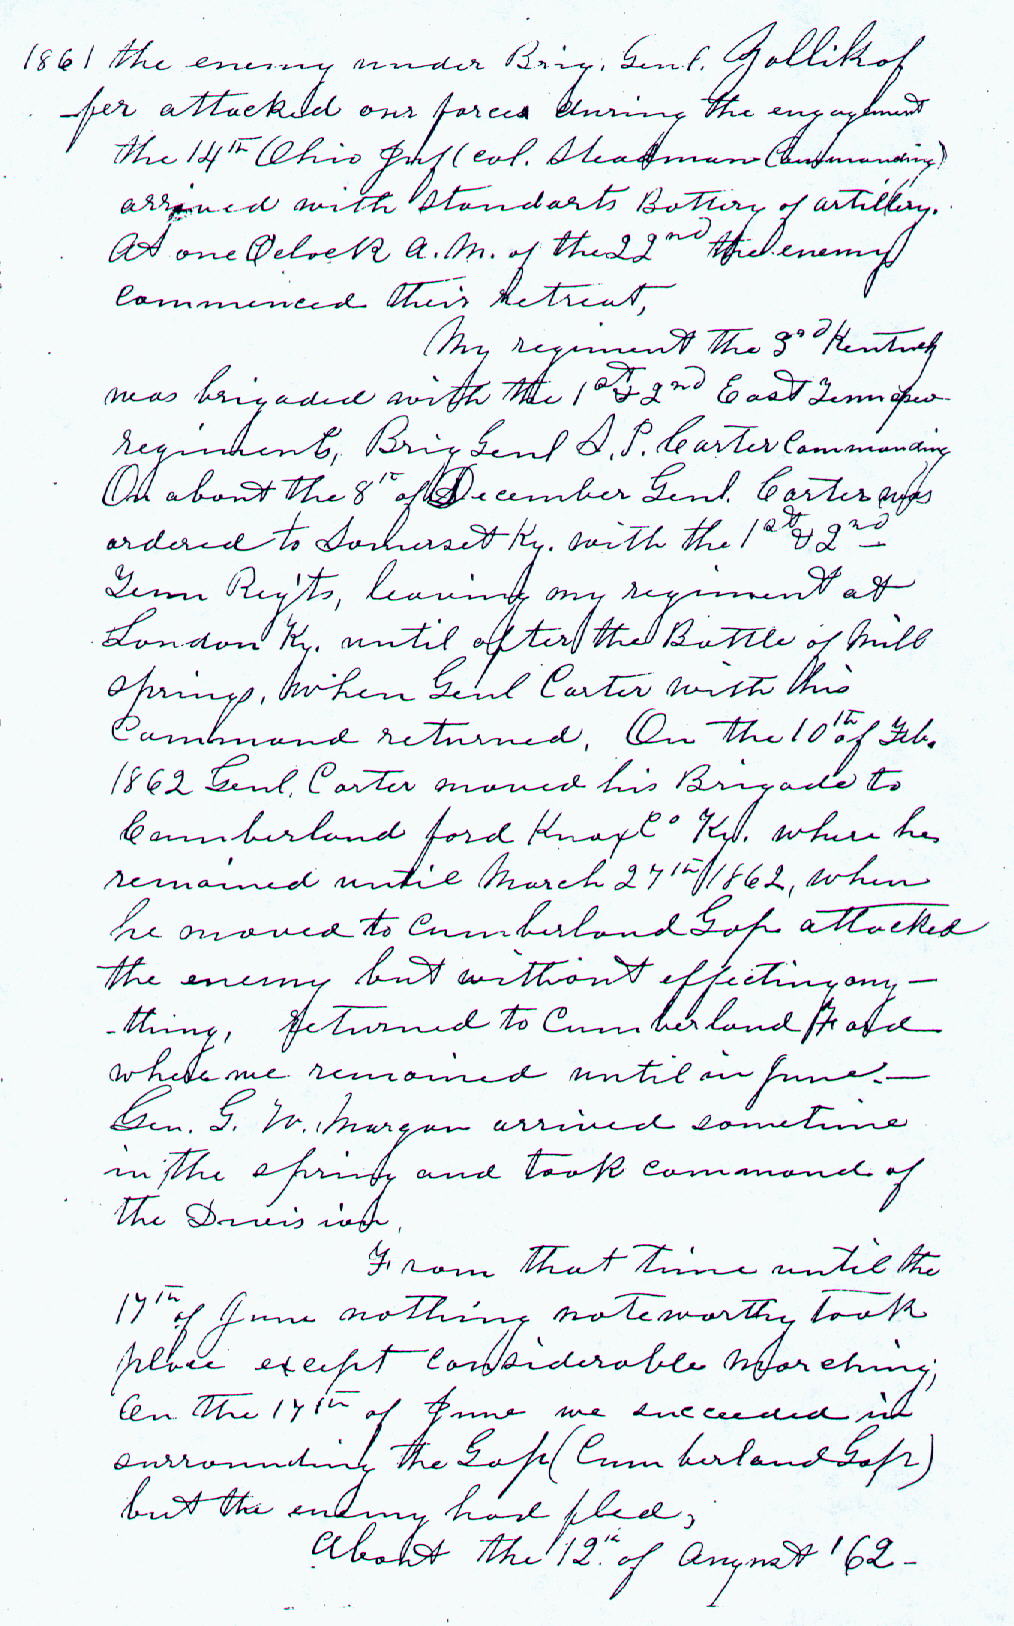 1861 the enemy under Brig. Genl. Zollikof
-fer attacked our forces during the engagement
the 14th Ohio Inf (Col. Steadman Commanding)
arrived with Standarts Battery of artillery.
At one Oclock A. M. of the 22nd the enemy
commenced their retreat,
My regiment the 3rd Kentucky
was brigaded with the 1st & 2nd East Tennessee
regiments, Brig Genl S. P. Carter Commanding
On about the 8th of December Genl. Carter was
ordered to Somerset Ky. with the 1st & 2nd
Tenn Reg'ts, leaving my regiment at
London Ky. until after the Battle of Mill
Springs, When Genl Carter with his
Command returned. On the 10th of Feb.
1862 Genl. Carter moved his Brigade to
Cumberland ford Knox Co Ky. where he
remained until March 27th 1862, when
he moved to Cumberland Gap attacked
the enemy but without effecting any-
-thing, returned to Cumberland Ford
where we remained until in June.-
Gen. G. W. Morgan arrived sometime
in the spring and took command of
the Division.
From that time until the
17th of June nothing noteworthy took
place except considerable marching;
On the 17th of June we succeeded in
surrounding the Gap (Cumberland Gap)
but the enemy had fled;
About the 12th of August '62-